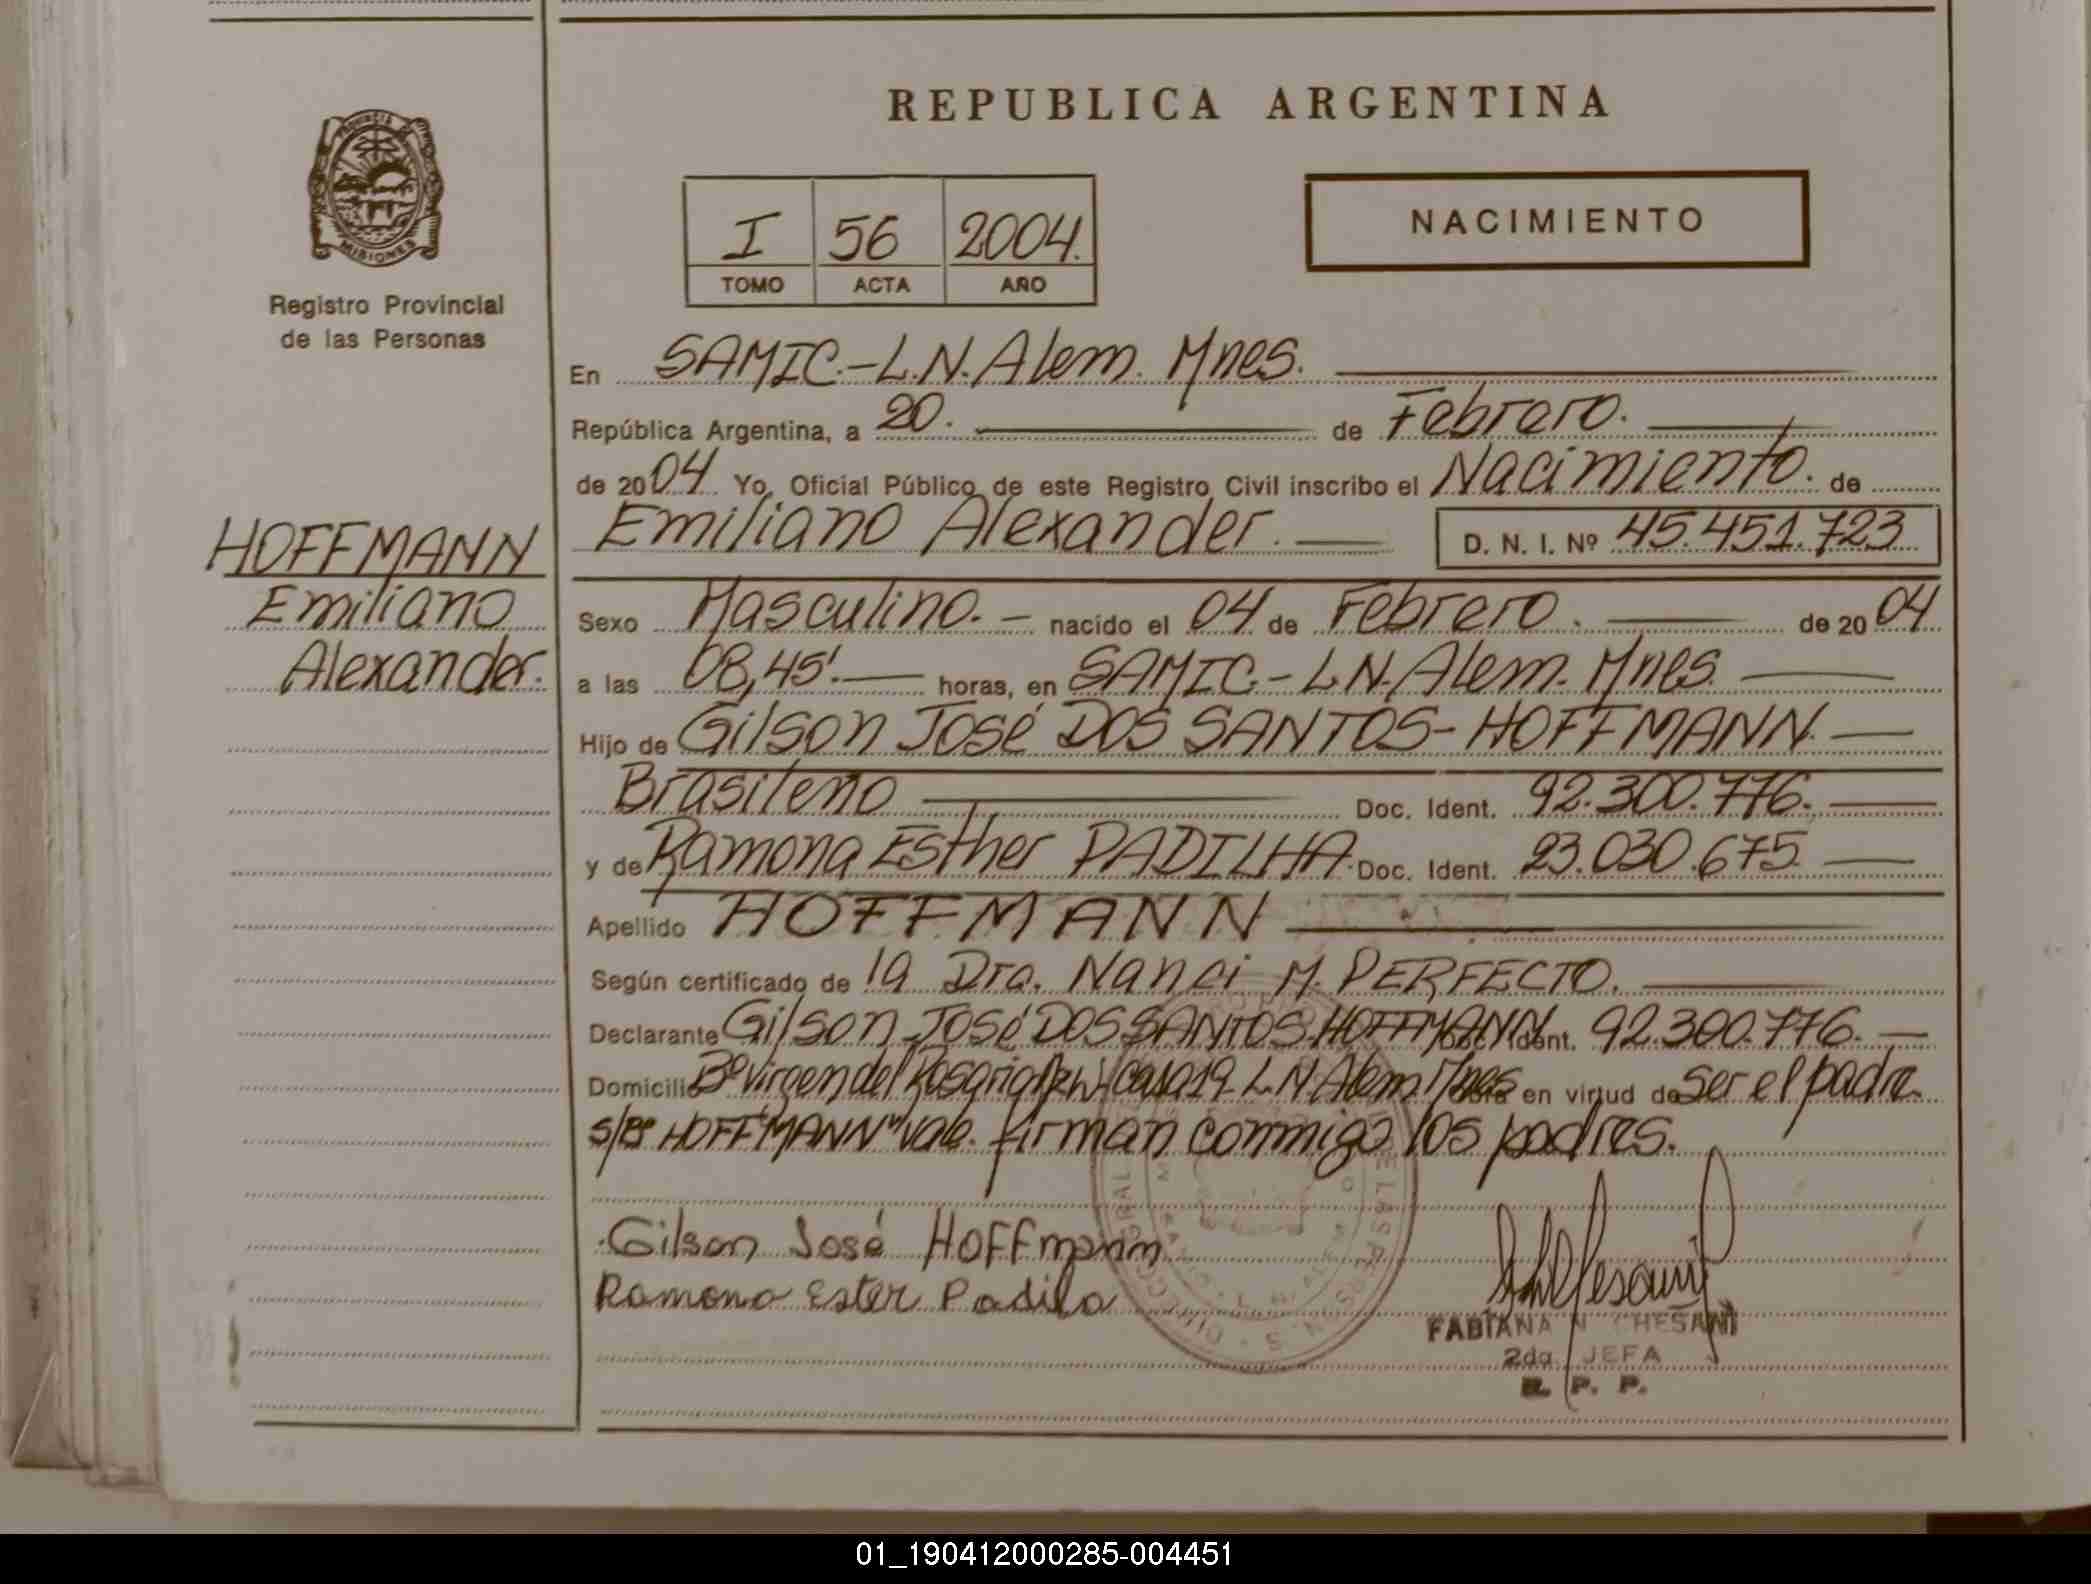 REPUBLICA ARGENTINA
PROVINCIA DE
MISIONES
Registro Provincial
de las Personas
I 56 2004.
TOMO ACTA AÑO
NACIMIENTO
En SAMIC.-L.N.Alem. Mnes.
República Argentina, a 20. de Febrero.
de 2004 Yo, Oficial Público de este Registro Civil inscribo el Nacimiento. de
Emiliano Alexander. D. N. I. Nº 45.451.723
HOFFMANN
Emiliano
Alexander.
Sexo Masculino. - nacido el 04 de Febrero. de 2004
a las 08,45'. horas, en SAMIC.-L.N.Alem. Mnes.
Hijo de Gilson José DOS SANTOS-HOFFMANN.
Brasileno Doc. Ident. 92.300.776.
y de Ramona Esther PADILHA. Doc. Ident. 23.030.675.
Apellido HOFFMANN
Según certificado de la Dra. Nanci M. PERFECTO.
Declarante Gilson José DOS SANTOS HOFFMANN Doc. Ident. 92.300.776.
Domicilio Bº Virgen del Rosario casa 19 L.N.Alem Mnes Obra en virtud de ser el padre.
s/Bº HOFFMANN" Vale. firman conmigo los padres.
Gilson José HOFFmann
Ramona Ester Padila
FABIANA N. CHESANI
2da. JEFA
R. P. P.
01_190412000285-004451